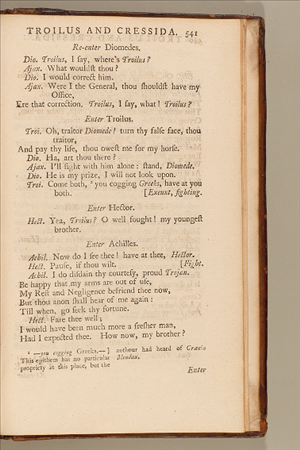 TROILUS AND CRESSIDA. 541
Re-enter Diomedes.
Dio. Troilus, I say, where's Troilus?
Ajax. What wouldst thou?
Dio. I would correct him.
Ajax. Were I the General, thou shouldst have my
Office,
Ere that correction. Troilus, I say, what! Troilus?
Enter Troilus.
Troi. Oh, traitor Diomede! turn thy false face, thou
traitor,
And pay thy life, thou owest me for my horse.
Dio. Ha, art thou there?
Ajax. I'll fight with him alone: stand, Diomede.
Dio. He is my prize, I will not look upon.
Troi. Come both, ² you cogging Greeks, have at you
both. [Exeunt, fighting.
Enter Hector.
Hect. Yea, Troilus? O well fought! my youngest
brother.
Enter Achilles.
Achil. Now do I see thee! have at thee, Hector.
Hect. Pause, if thou wilt. [Fight.
Achil. I do disdain thy courtesy, proud Trojan.
Be happy that my arms are out of use,
My Rest and Negligence befriend thee now,
But thou anon shalt hear of me again:
Till when, go seek thy fortune.
Hect. Fare thee well;
I would have been much more a fresher man,
Had I expected thee. How now, my brother?
² —you cogging Greeks,—]
This epithet has no particular
propriety in this place, but the
authour had heard of Græcia
Mendax.
Enter